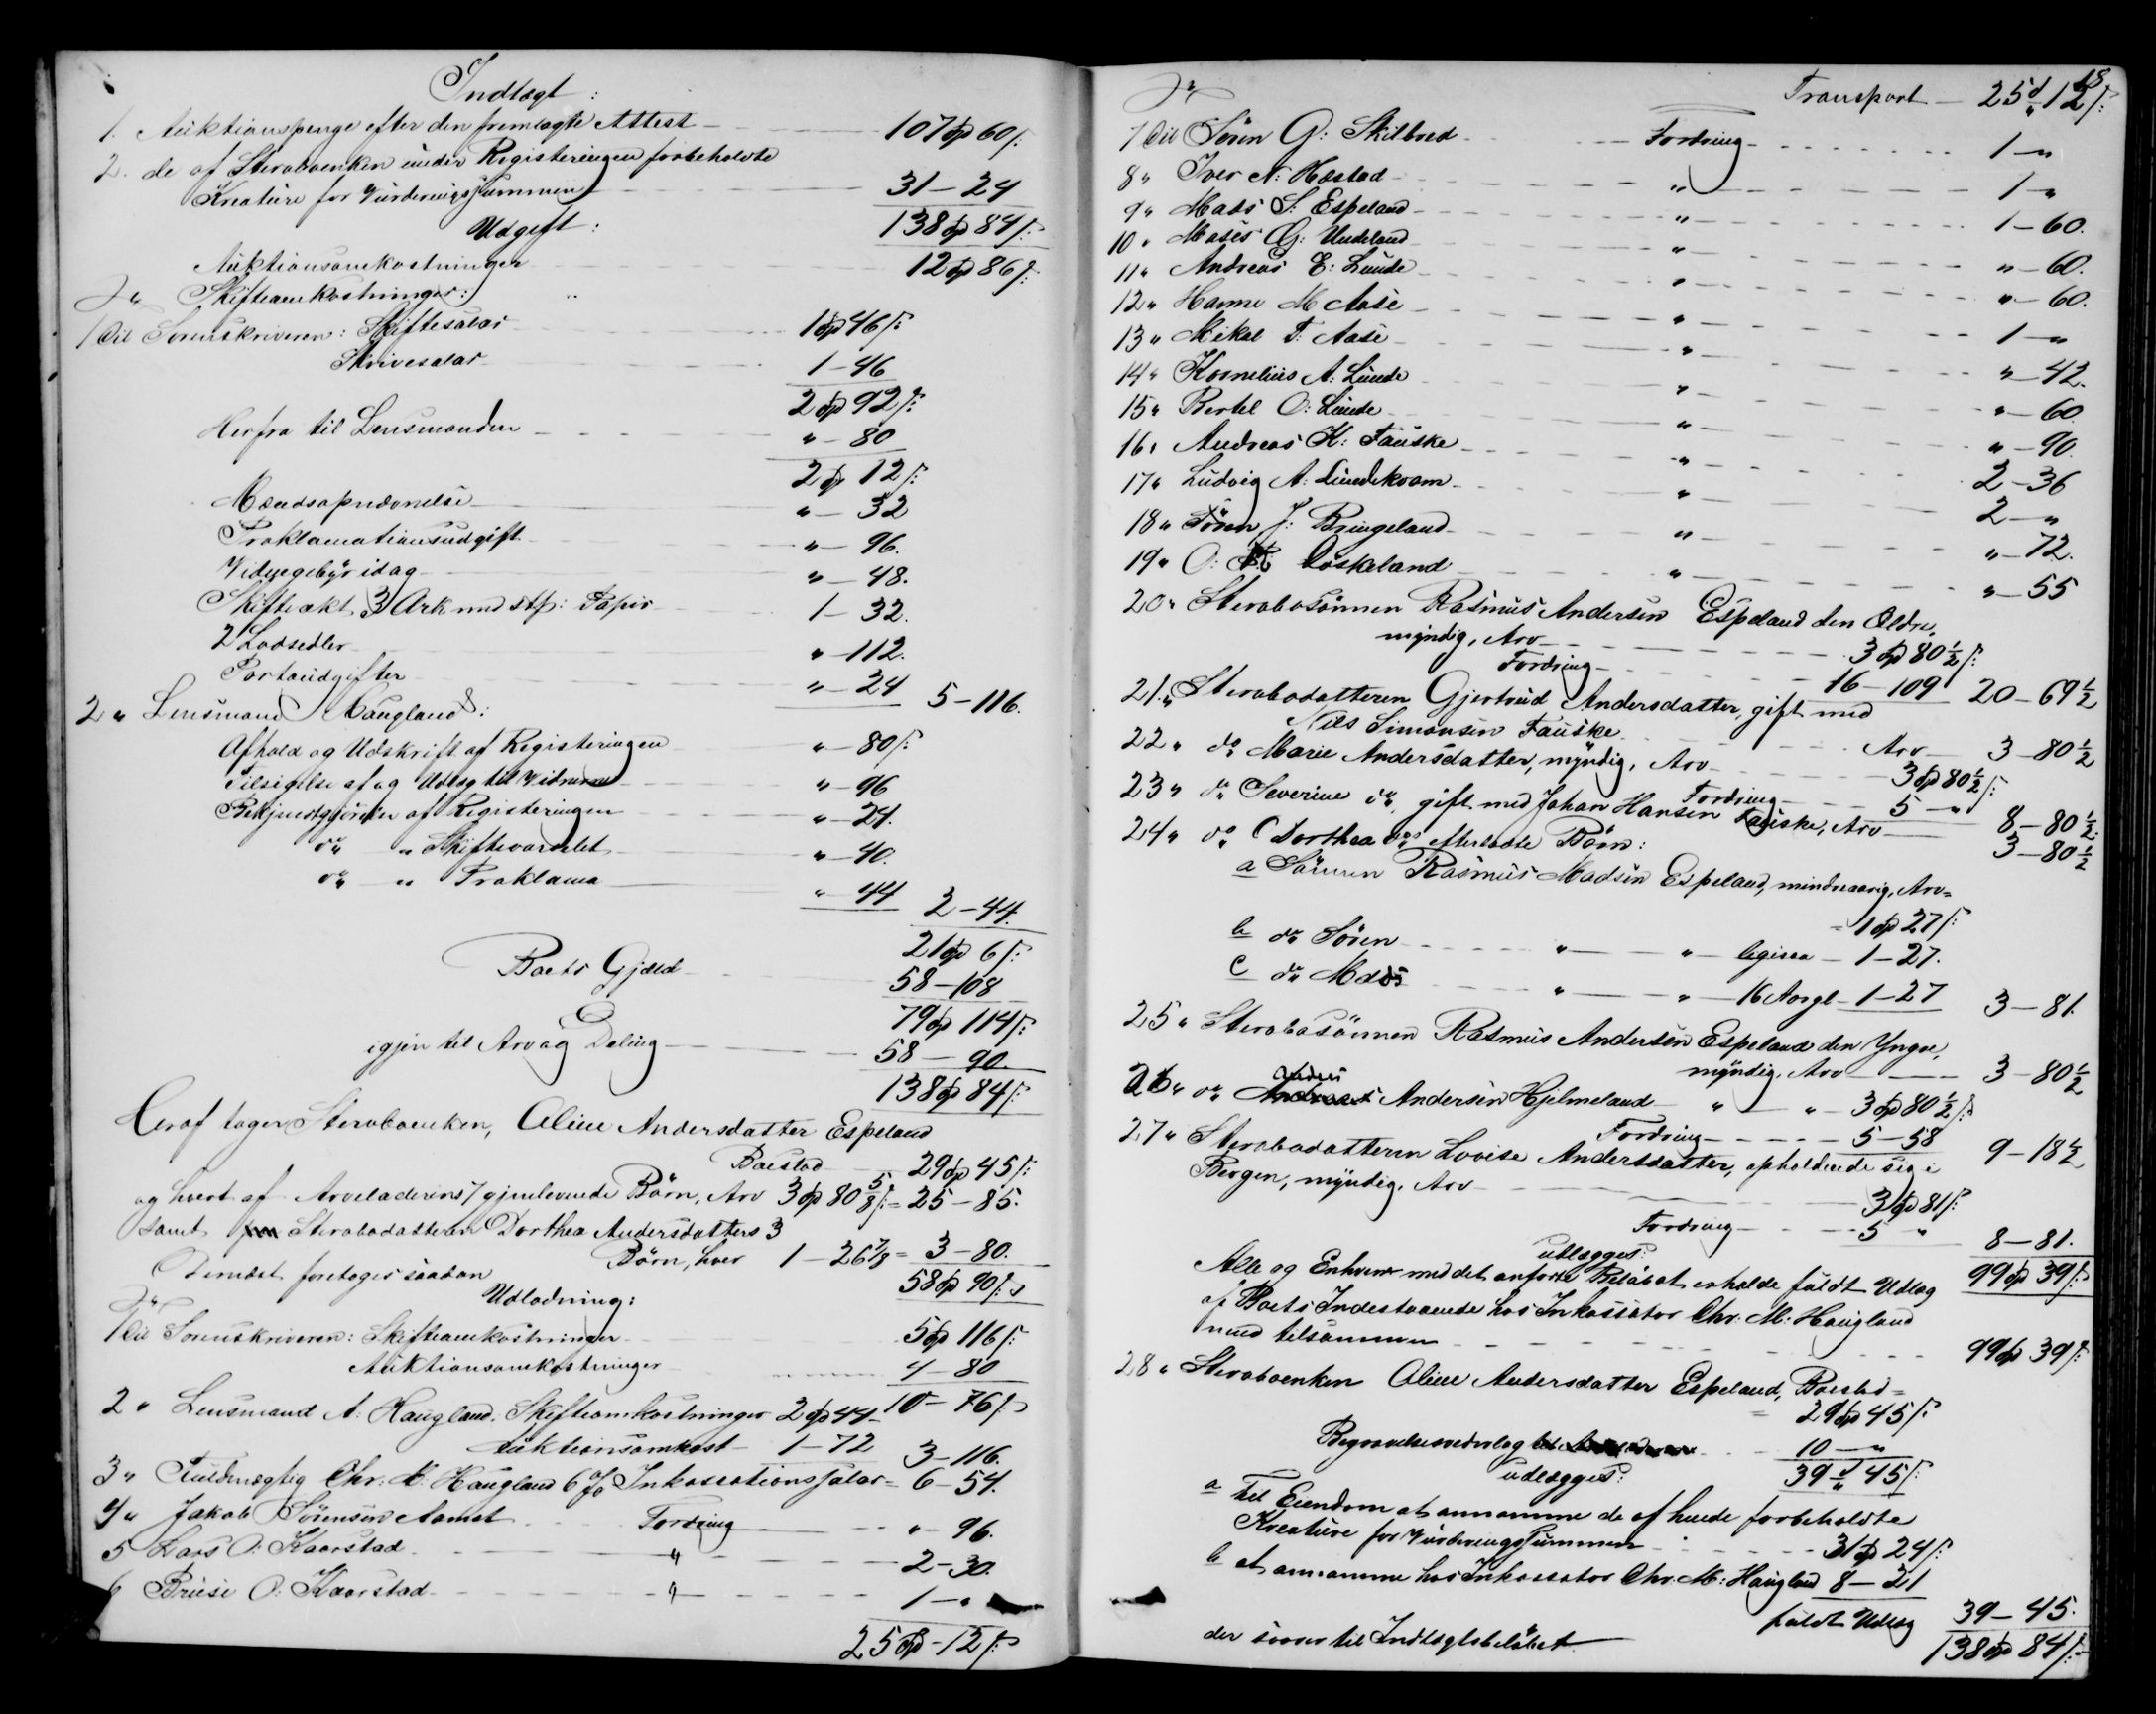 Indtægt:
1. Auktionspenge efter den fremlagte Attest — 107 Spd 60 s:
2. de af Stervboenken under Registeringen forbeholdte
Kreature for Vurderingssummen — 31 — 24
138 Spd 84 s:
Udgift:
Auktionsomkostninger 12 Spd 86 s:
Skifteomkostninger:
1 Til Sorenskriveren: Skiftesalær 1 Spd 46 s:
Skrivesalær 1 — 46
2 Spd 92 s:
Herfra til Lensmanden " — 80
2 Spd 12 s:
Mændsopnævnelse " — 32
Proklamationsudgift " — 96.
Vidnegebyr idag " — 48.
Skifteakt 3 Ark med stp: Papir 1 — 32.
2 Lodsedler " — 112.
Portoudgifter " — 24 5 — 116.
2 " Lensmand Haugland:
Afhold og Udskrift af Registeringen " — 80 s:
Tilsigelse af og Udlæg til Vidnerne " — 96
Bekjendtgjørelse af Registeringen " — 24.
do " Skiftevarslet " — 40.
do — " Proklama " 44 2 — 44.
21 Spd 6 s:
Boets Gjæld 58 — 108
79 Spd 114 s:
igjen til Arv og Deling — 58 — 90.
138 Spd 84 s:
Heraf tager Stervboenken, Oline Andersdatter Espeland
Boeslod 29 Spd 45 s:
og hvert af Arveladerens 7 gjenlevende Børn, Arv 3 Spd 80 5/8 s: = 25 — 85.
samt Stervbodatteren Dorthea Andersdatters 3
Børn, hver 1 — 26 7/8 = 3 — 80.
58 Spd 90 s:
Dernæst foretoges saadan
Udlodning:
1 Til Sorenskriveren: Skifteomkostninger 5 Spd 116 s:
Auktionsomkostninger 4 — 80
10 — 76 s:
2 " Lensmand A. Haugland. Skifteomkostninger 2 Spd 44 —
Auktionsomkost — 1 — 72 3 — 116.
3 " Fuldmægtig Chr. M. Haugland 6 % Inkassationssalær = 6 — 54.
4 " Jakob Sørensen Aamot Fordring " — 96.
5 Lars O: Kaarstad " 2 — 30.
6 Brüse O: Kaarstad " 1 — "
25 Spd — 12 s:
18
Transport — 25 " 12 s:
7 Til Søren G: Skilbred Fordring 1 — "
8 " Iver N: Hæstad " 1 — "
9 " Mads S: Espeland " 1 — 60.
10 " Moses G: Undeland " " — 60.
11 " Andreas E: Lunde " " — 60.
12 " Hanne M Aase " 1 — "
13 " Mikal T: Aase " " — 42.
14 " Kornelius A: Lunde " " — 60
15 " Bertel O: Lunde " " — 90.
16 " Andreas K: Fauske " 2 — 36
17 " Ludvig A: Lundekvam " 2 — "
18 " Søren J: Bringeland " " — 72.
19 " O: Hoskeland " " — 55
20 " Stervbosønnen Rasmus Andersen Espeland den Ældre,
myndig, Arv — 3 Spd 80 1/2 s:
Fordring — 16 — 109 20 — 69 1/2
21. " Stervbodatteren Gjertrud Andersdatter, gift med
Nils Simonsen Fauske Arv 3 — 80 1/2
22 " do Marie Andersdatter, myndig, Arv 3 Spd 80 1/2 s:
Fordring 5 — " 8 — 80 1/2
23 " do Severine do, gift med Johan Hansen Fauske, Arv 3 — 80 1/2
24 " do Dorthea do's efterladte Børn:
a Sønnen Rasmus Madsen Espeland, mindreaarig, Arv =
= 1 Spd 27 s:
b do Søren " — " — ligesaa — 1 — 27.
c do Mads " — " — 16 Aar gl — 1 — 27 3 — 81.
25 " Stervbosønnen Rasmus Andersen Espeland den Yngre,
myndig, Arv 3 — 80 1/2
Anders
26 " do Andreas Andersen Hjelmeland " — " — 3 Spd 80 1/2 s:
Fordring — 5 — 58 9 — 18 1/2
27 " Stervbodatteren Lovise Andersdatter, opholdende sig i
Bergen, myndig, Arv 3 Spd 81 s:
Fordring — 5 " 8 — 81.
99 Spd 39 s:
udlægges:
Alle og Enhver med det anførte Beløb at erholde fuldt Udlæg
af Boets Indestaaende hos Inkassator Chr. M: Haugland
med tilsammen 99 Spd 39 s:
28 " Stervboenken Oline Andersdatter Espeland, Boeslod =
= 29 Spd 45 s:
Begravelsesvederlag 10 — "
39 " 45 s:
udlægges:
a til Eiendom at annamme de af hende forbeholdte
Kreature for Vurderingssummen 31 Spd 24 s:
b at annamme hos Inkassator Chr. M: Haugland 8 — 21
fuldt Udlæg 39 — 45.
der svarer til Indtægtsbeløbet 138 Spd 84 s: